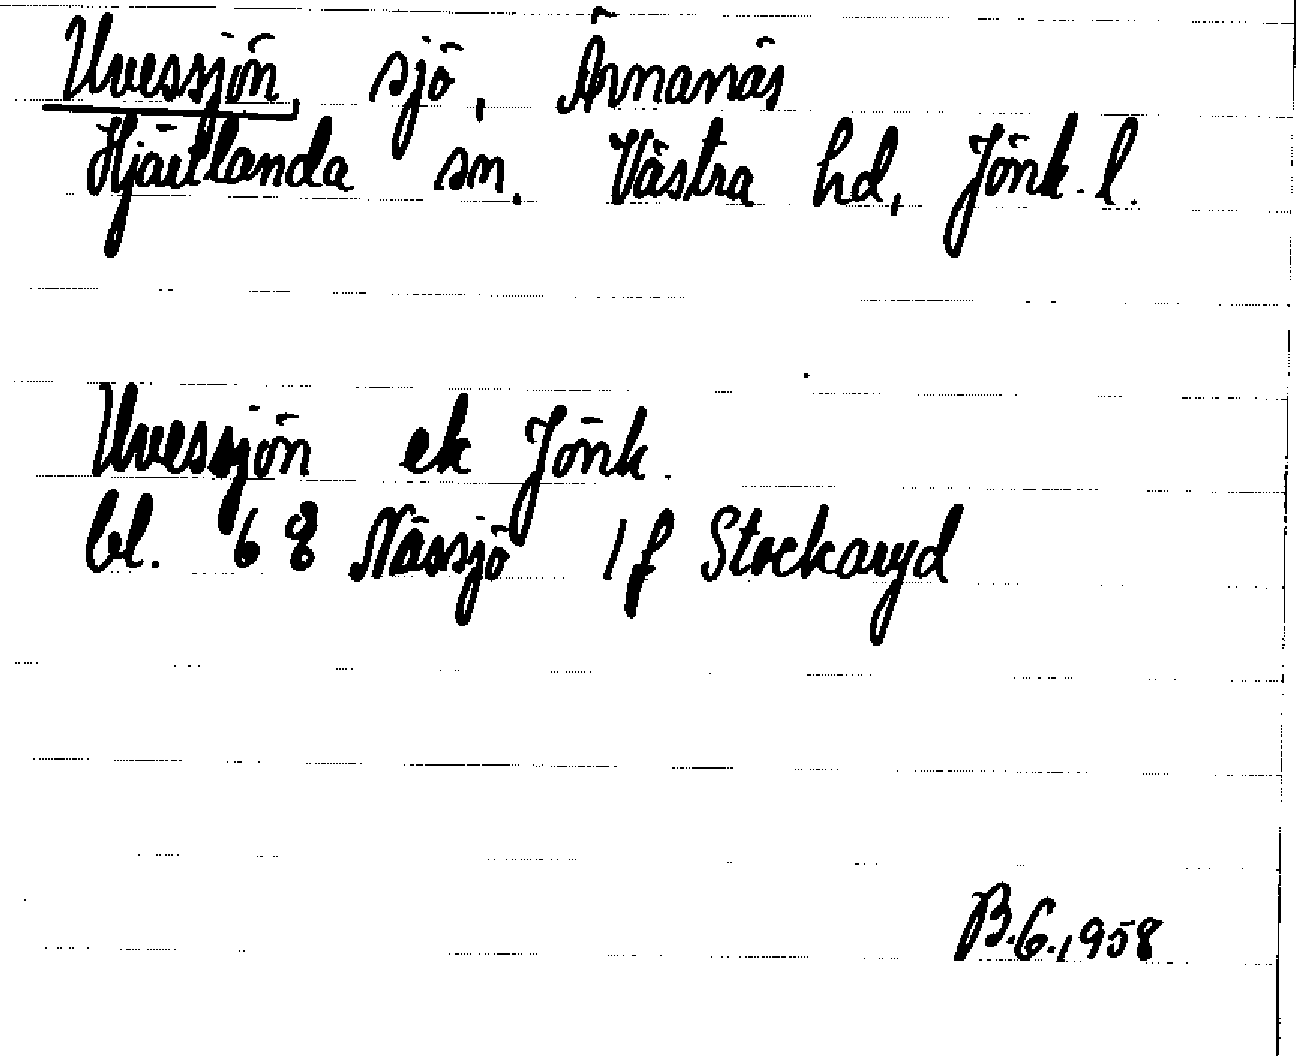 Uvessjön, sjö, Ärnanäs
Hjärtlanda sn. Västra hd, Jönk. l.
Uvessjön ek Jönk.
bl. 68 Nässjö 1f Stockaryd
B.G. 1958